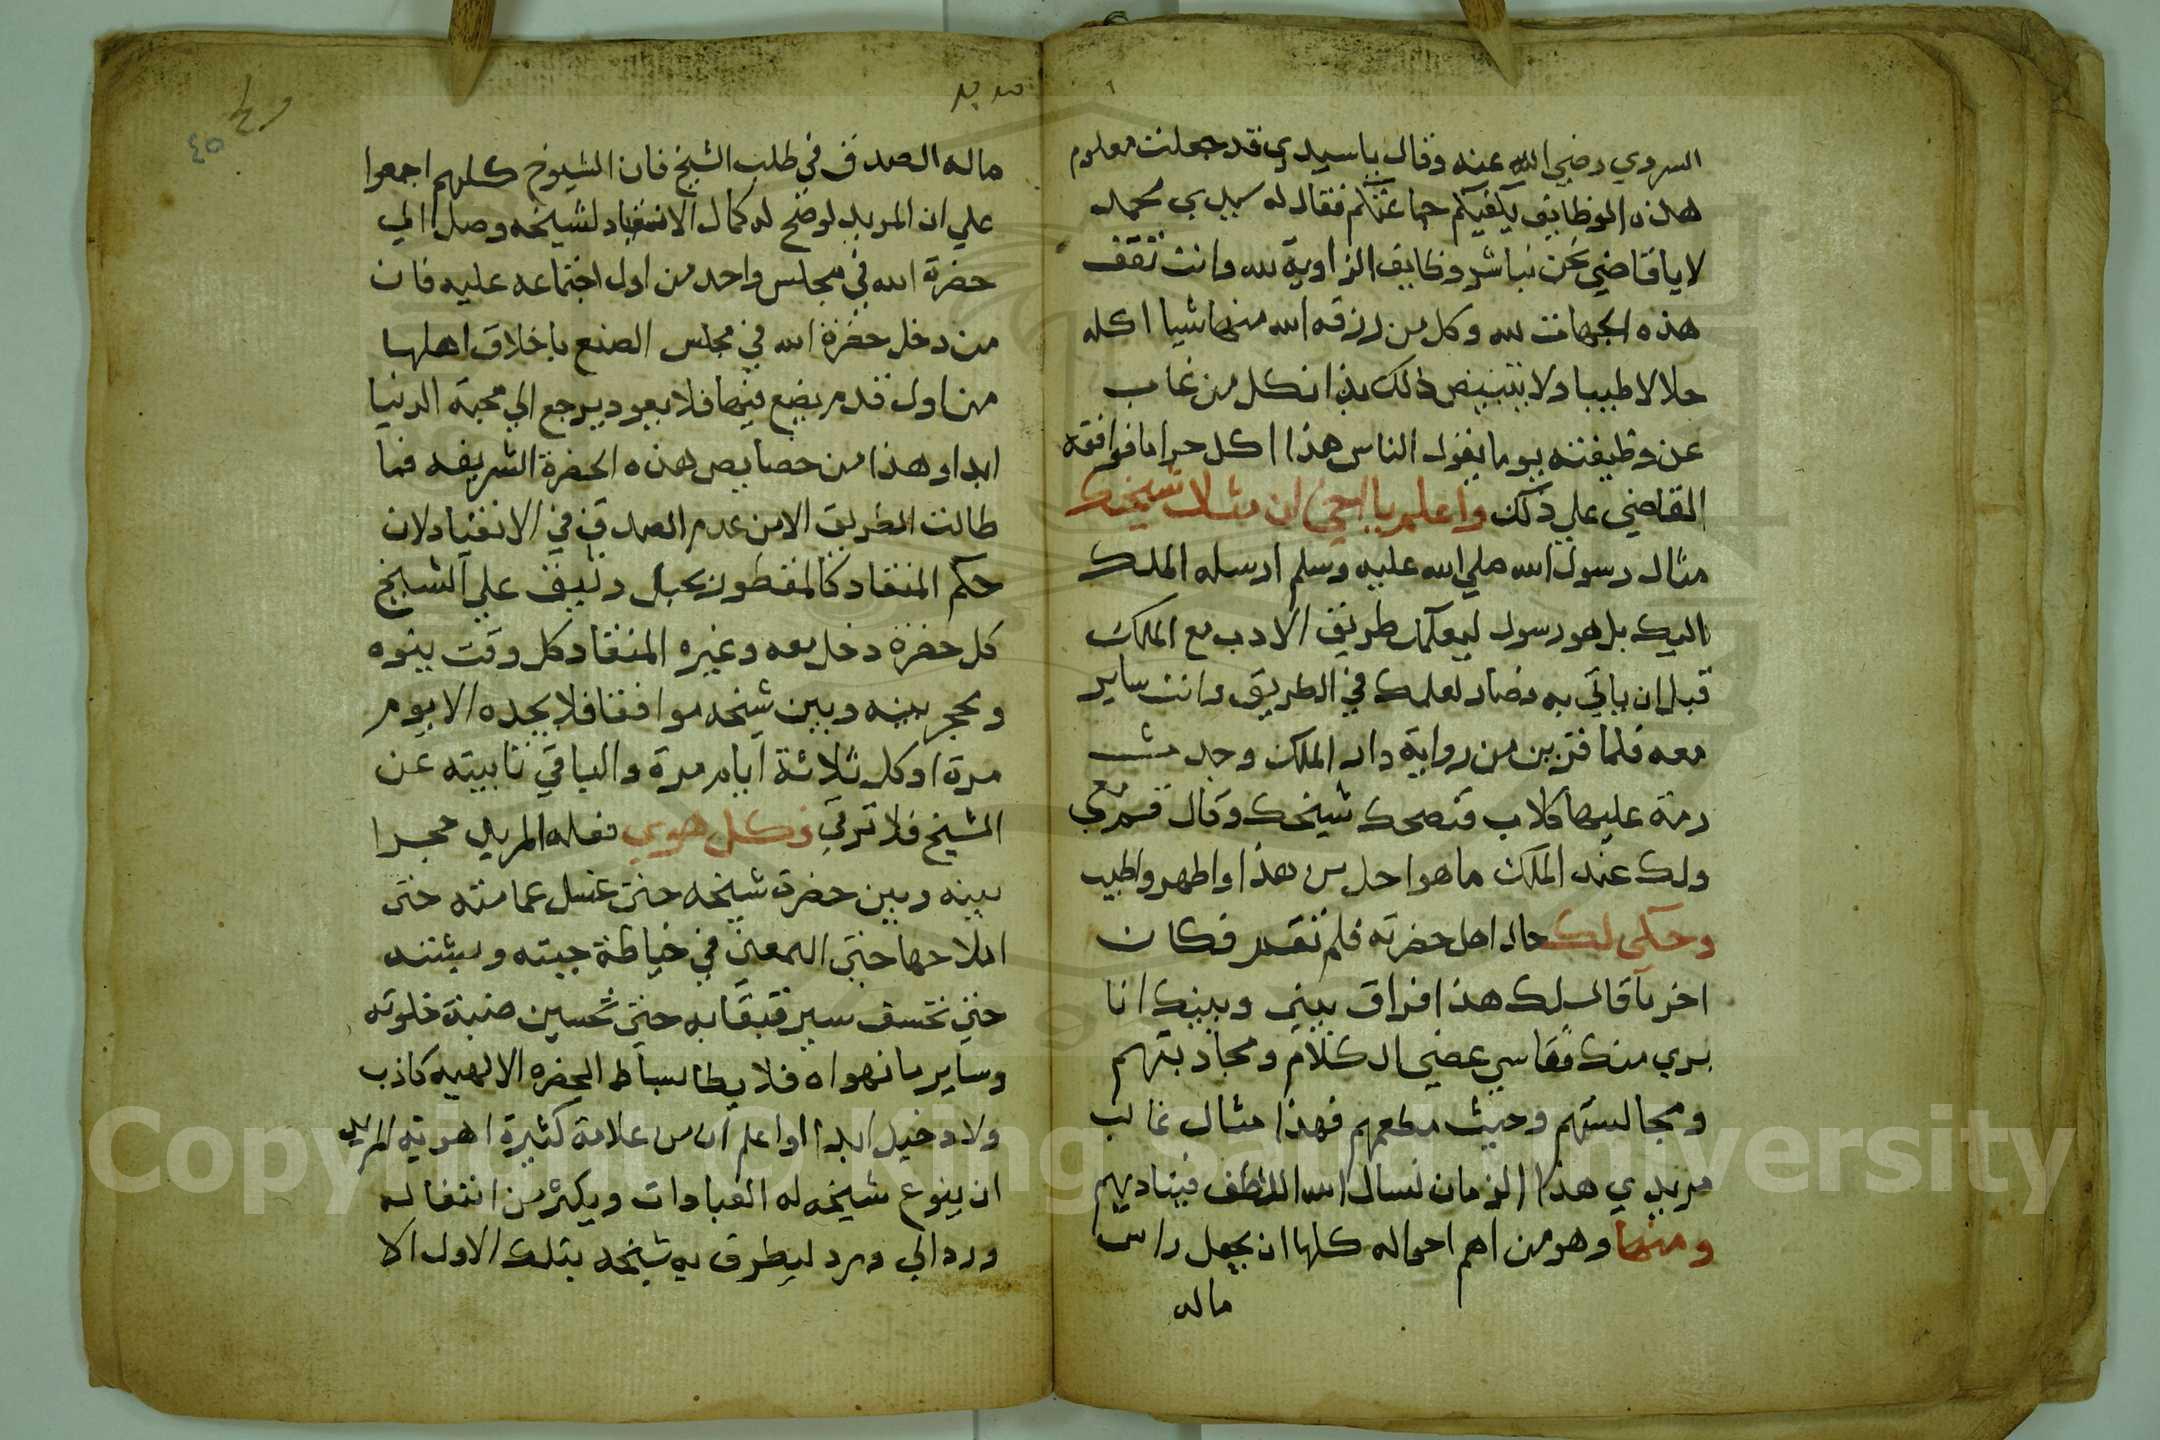 السروي رضي الله عنه وقال ياسيدي قد جعلت معلوم
هذه الوظايف يكفيكم جماعتكم فقال له سيدي محمد
لا ياقاضي نحن نباشر وظايف الزاوية لله وانت تقف
هذه الجهات لله وكل من رزقه الله منها شيا اكله
حلالا طيبا ولا ذلك كل من غاب
عن وظيفته يوما يقول الناس هذا اكل حراما فوافقه
القاضي علي ذلك واعلم يا اخي ان مثال شيخك
مثال رسول الله صلي الله عليه وسلم ارسله الملك
اليك بل هو رسول ليعلمك طريق الادب مع الملك
قبل ان ياتي به فصار يعلمك في الطريق وانت ساير
معه فلما قربن من رواية دار الملك وجد
رمة عليها كلاب فنصحك شيخك وقال قم معي
ولك عند الملك ما هو احل من هذا واطهر واطيب
وحكي لك حال اهل حضرته فلم تقدر فكان
اخر ما قال لك هذا فراق بيني وبينك انا
بري منك فقاسي عضي الكلام ومجاذبتهم
ومجالستهم وحيث مطعمهم فهذا مثال غالب
مريدي هذا الزمان نسال الله اللطف فيناديهم
ومنها وهو من اهم احواله كلها ان يجعل راس
ماله
٤٥
ماله الصدق في طلب الشيخ فان الشيوخ كلهم اجمعوا
علي ان المريد لو صح له كمال الانقياد لشيخه وصل الي
حضرة الله في مجلس واحد من اول اجتماعه عليه فان
من دخل حضرة الله في مجلس الصنع باخلاق اهلها
من اول قدم يضع فيها فلا يعود يرجع الي محبة الدنيا
ابدا وهذا من خصايص هذه الحضرة الشريفه فما
طالت الطريق الا من عدم الصدق في الانقياد لان
حكم المنقاد كالمقطور بحبل الشيخ
كل حضرة دخل معه وغيره المنقاد كل وقت يتوه
ويحجر بينه وبين شيخه موافقا فلا يجده الا يوم
مرة او كل ثلاثة ايام مرة والباقي عن
الشيخ فلا ترقي وكل هوي فعله المريد حجرا
بينه وبين حضرت شيخه حتي غسل عمامته حتي
اصلاحها حتي المعني في خياطة جبته
حتي سير قبقابه حتي تحسين خلوته
وساير ما يهواه فلا يطا بساط الحضره الالهيه كاذب
ولا دخيل ابدا واعلم ان من علامة كثيرة المريد
ان ينوع شيخه له العبادات ويكثر من انتقاله
ورد الي ورد ليطرق به شيخه بتلك الاول